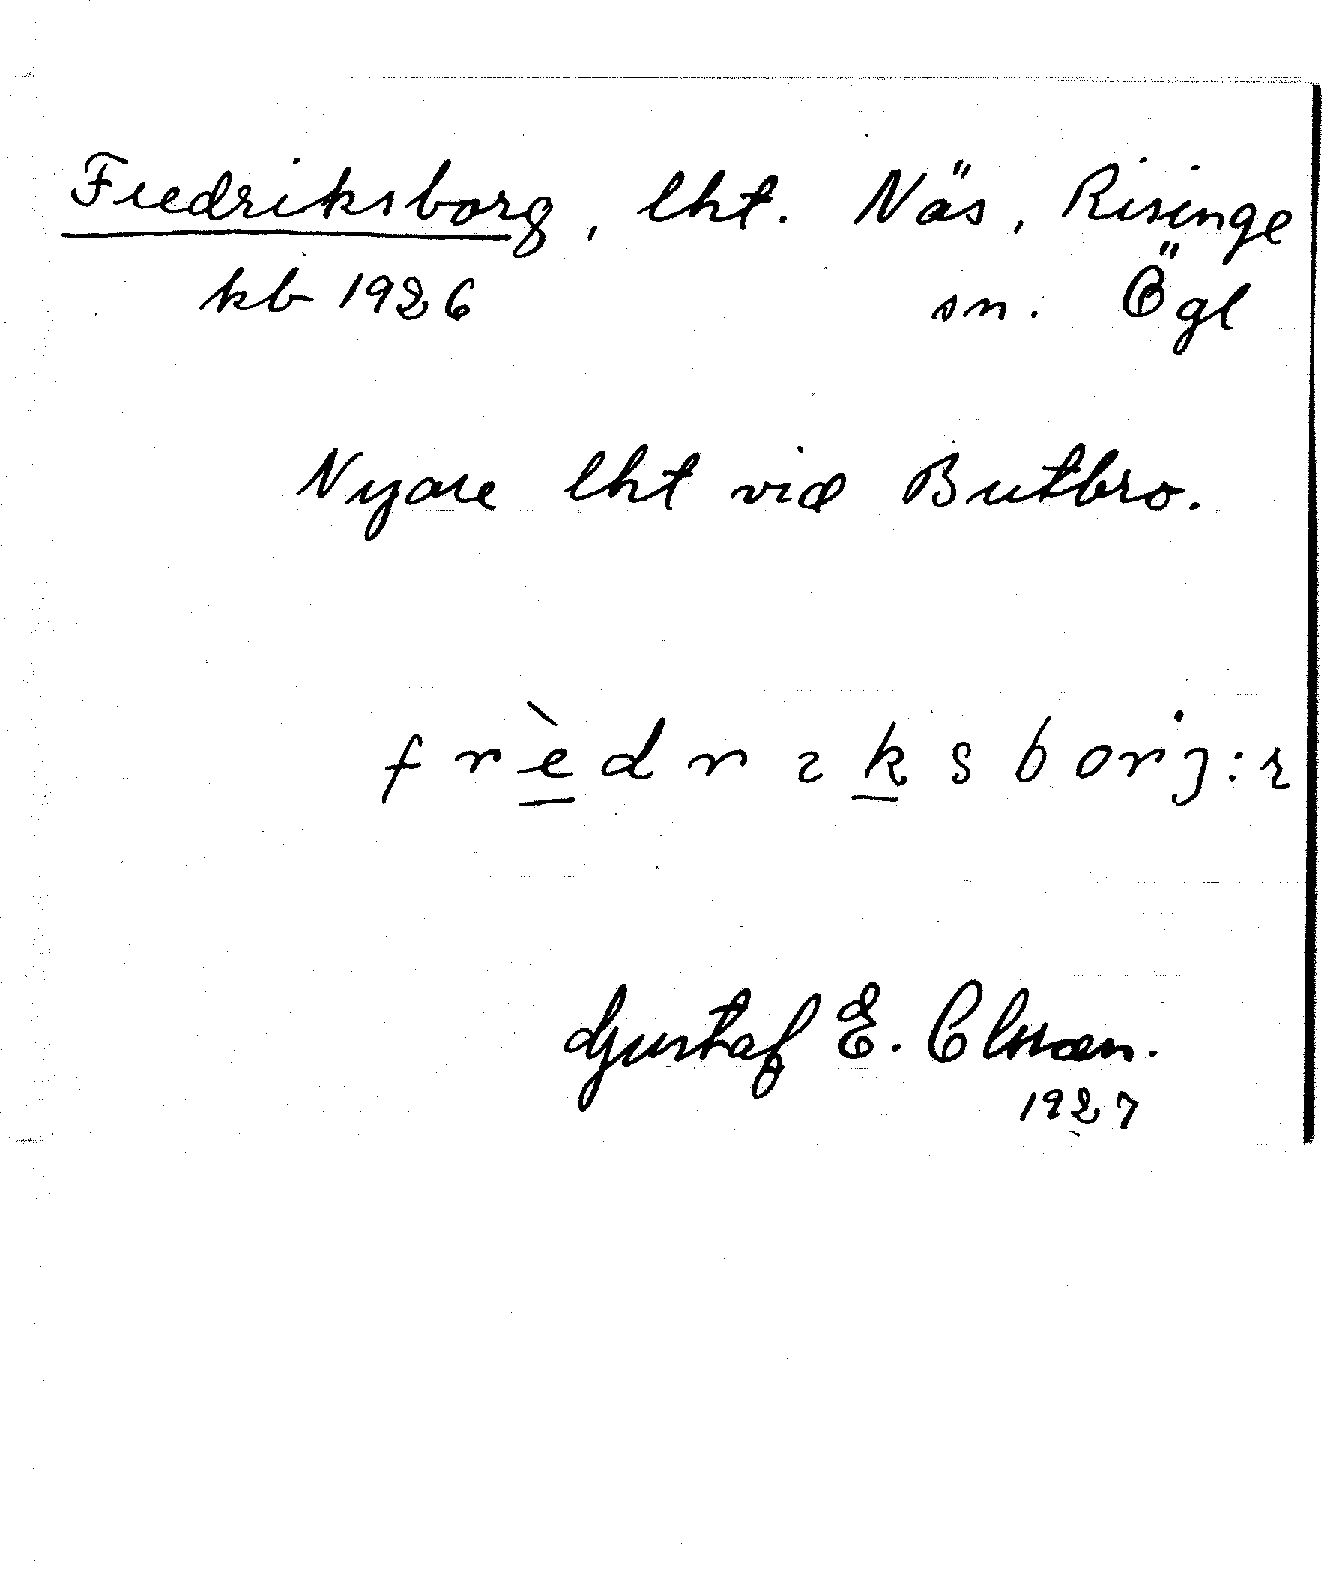 Fredriksborg, lht. Näs, Risinge
kb 1926 sn. Ögl
Nyare lht vid Butbro.
frèdrıksborȷ:ı
Gustaf E. Clsson.
1927